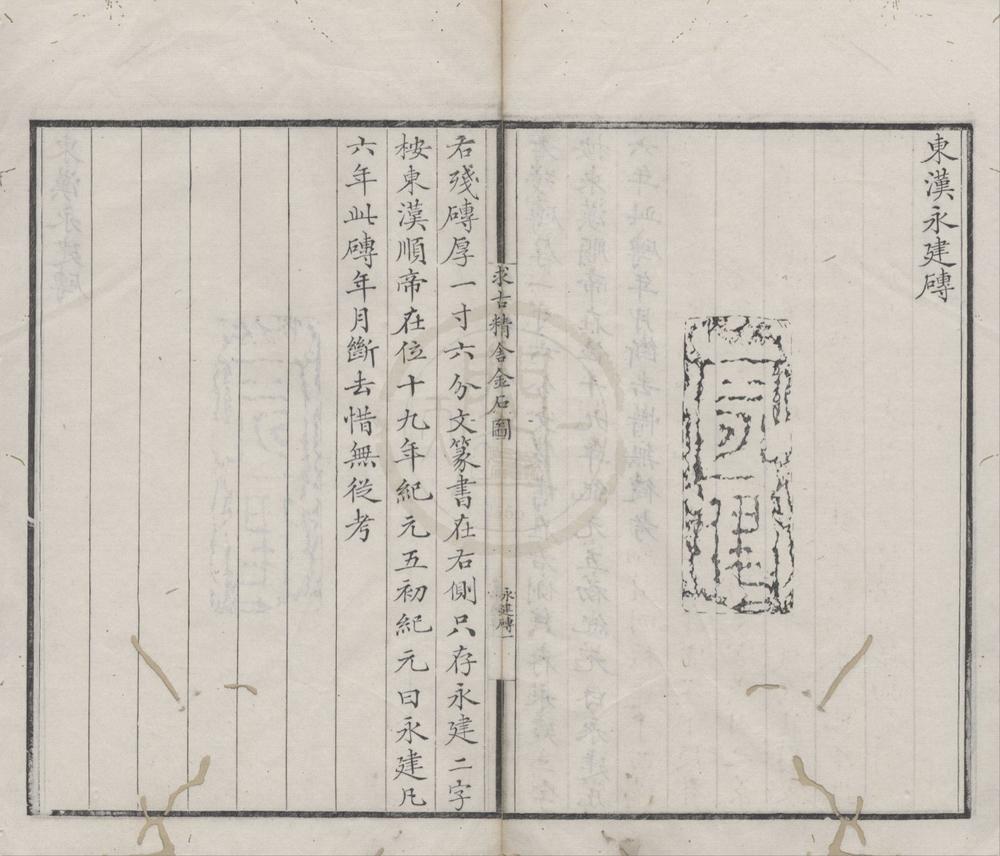 東漢永建磚
求古精舍金石圖
永建磚一
右殘磚厚一寸六分文篆書在右側只存永建二字
桉東漢順帝在位十九年紀元五初紀元曰永建凡
六年此磚年月斷去惜無從考